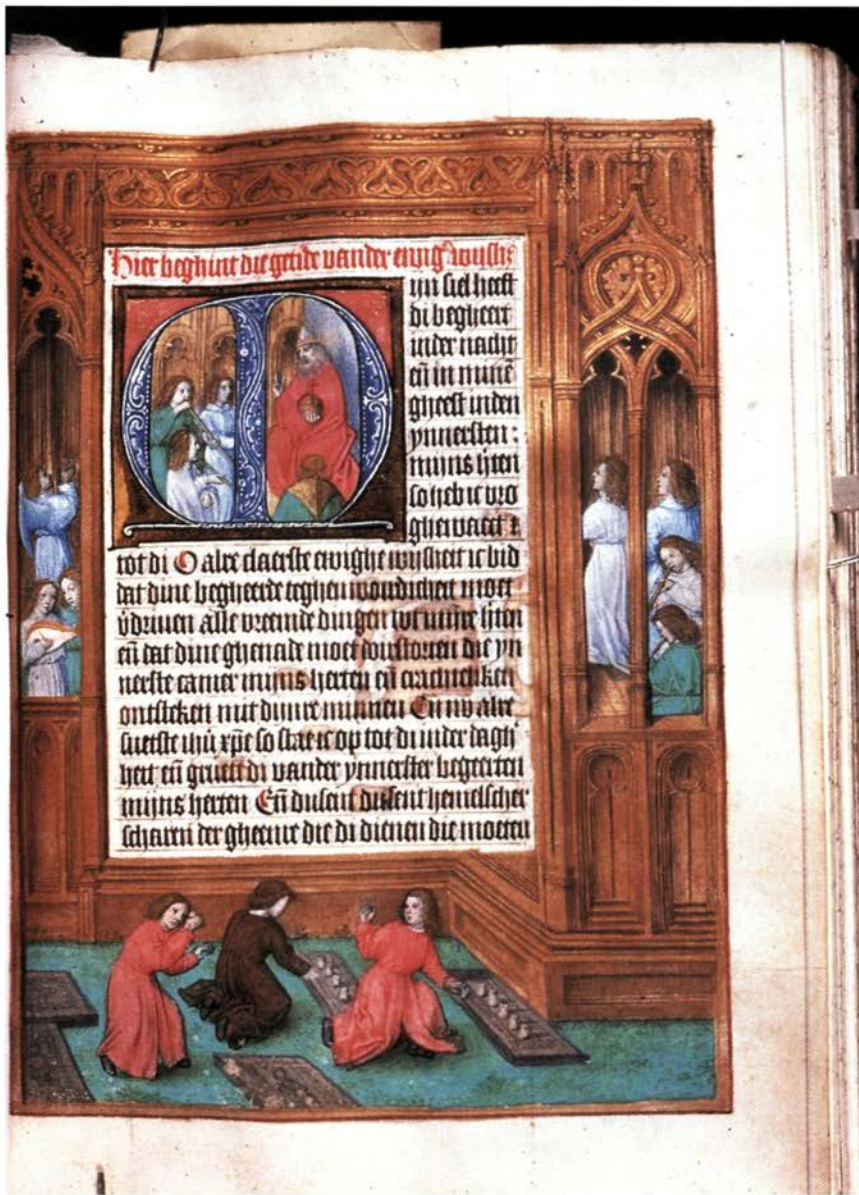 Hier beghint die getide vander ewig wijsh
ijn siel heeft
di begheert
inder nacht
eñ in minē
gheest inden
ynnersten :
mijns h̄ten
so heb ic vro
ghewaect
tot di O alre claerste ewighe wijsheit ic bid
dat dine begheerde teghenwoordicheit moet
v̄driven alle vreemde dingen wt mijnre h̄ten
eñ dat dine ghenade moet doerstorten die yn
nerste camer mijns herten eñ crachteliken
ontsteken mit dijnre minnen Eñ nv alre
suetste ihū xp̄e so stae ic op tot di inder dagh
heit eñ gruetē di vander ynnerster begeerten
mijns herten Eñ dusent dusent hemelscher
scharen der gheenre die di dienen die moeten